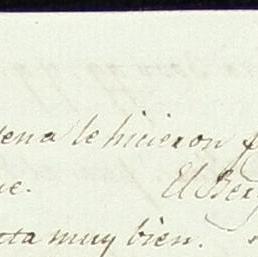 ena le hicieron
ue. El Ber
tta muy bien.